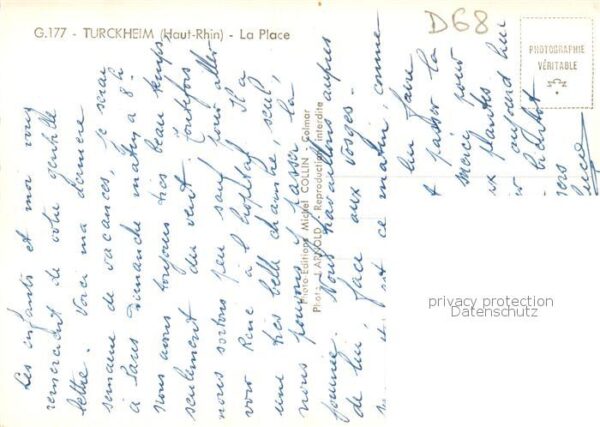 G.177 - TURCKHEIM (Haut-Rhin) - La Place
D68
PHOTOGRAPHIE
VÉRITABLE
Les enfants et moi vous
remercient de votre gentille
lettre. Voici ma dernière
semaine de vacances, je serai
à Paris dimanche matin à 8 h
nous avons toujours très beau temps
seulement du vent. Toutefois
nous sortons peu sauf pour aller
voir René à l'hôpital. Il a
une très belle chambre, seul,
nous pouvons y passer la
journée. Nous travaillons auprès
de lui, face aux Vosges.
ce matin, comme
lui faire
passer la
merci pour
plantes
aujourd'hui
bientôt
Photo-Editions Michel COLLIN - Colmar
ARNOLD - Reproduction interdite
privacy protection
Datenschutz